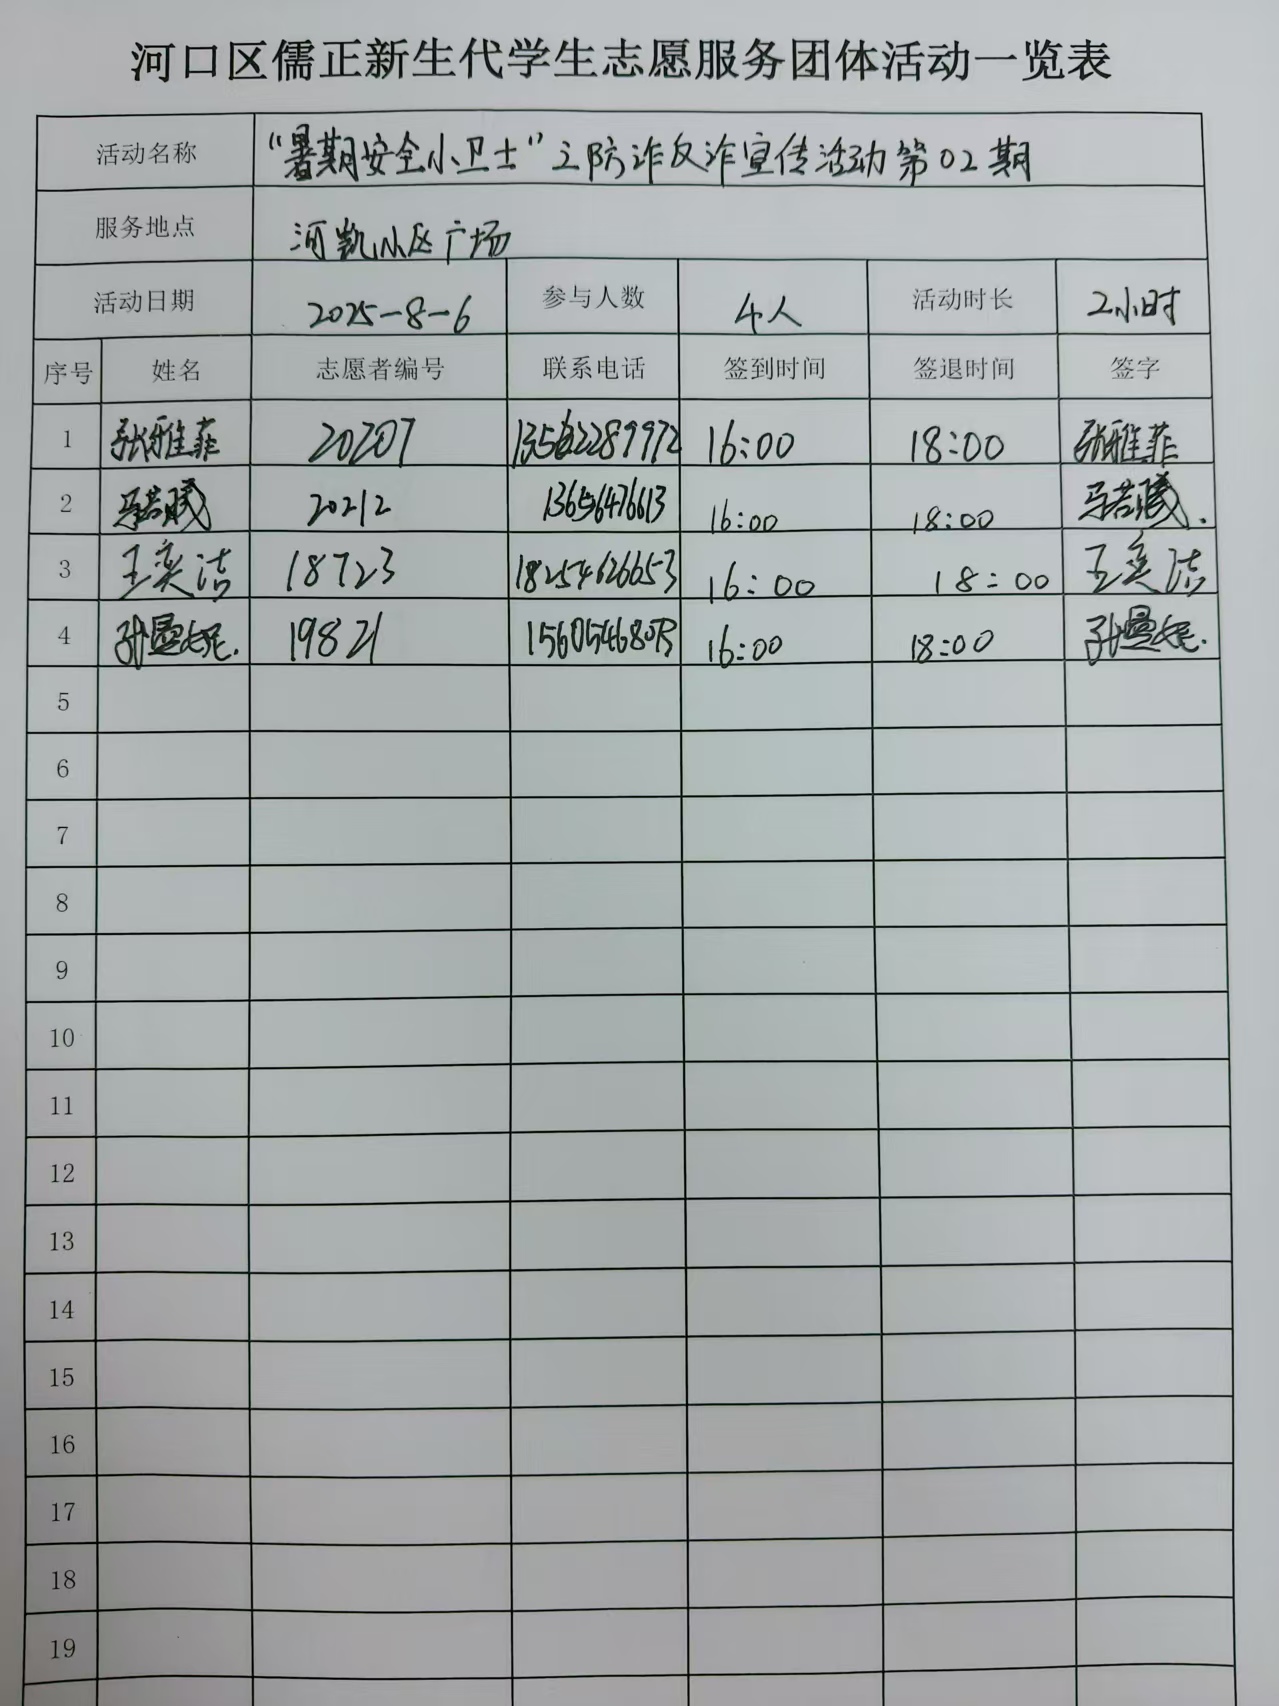 河口区儒正新生代学生志愿服务团体活动一览表
活动名称 “暑期安全小卫士”之防诈反诈宣传活动第02期
服务地点 河凯小区广场
活动日期 2025-8-6 参与人数 4人 活动时长 2小时
序号 姓名 志愿者编号 联系电话 签到时间 签退时间 签字
1 张雅菲 20207 16:00 18:00 张雅菲
2 马若曦 20212 13656476613 16:00 18:00 马若曦.
3 王奕洁 18723 18254626653 16:00 18:00 王奕洁
4 孙曼妮. 19821 16:00 18:00 孙曼妮.
5
6
7
8
9
10
11
12
13
14
15
16
17
18
19